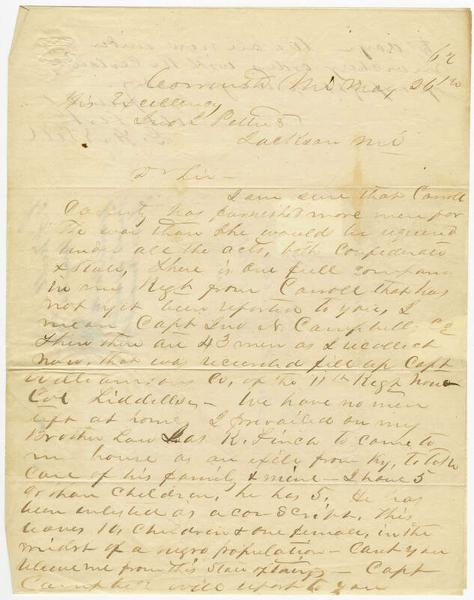 62
Corinth Mi May 26th
His Excellency
Jno J. Pettus
Jackson Mi
Dr Sir -
I am sure that Carroll
County has furnished more men for
the war than she would be required
under all the acts, both Confederate
& State, There is one full company
in my Regt from Carroll that has
not yet been reported to you, I
mean Capt Jno N. Campbells Co
Then there are 43 men as I recollect
now, that was recruited fill up Capt
Williamsons Co, of the 11th Regt now
Col Liddells, - We have no men
left at home, I prevailed on my
Brother Law Jas K. Finch to come to
my house as an exile from Ky, to take
care of his family & mine - I have 5
orphan children, he has 5. He has
been enlisted as a conscript. This
leaves 10 children & one female, in the
midst of a negro population - Cant you
relieve me from this State of things - Capt
Campbell will report to you